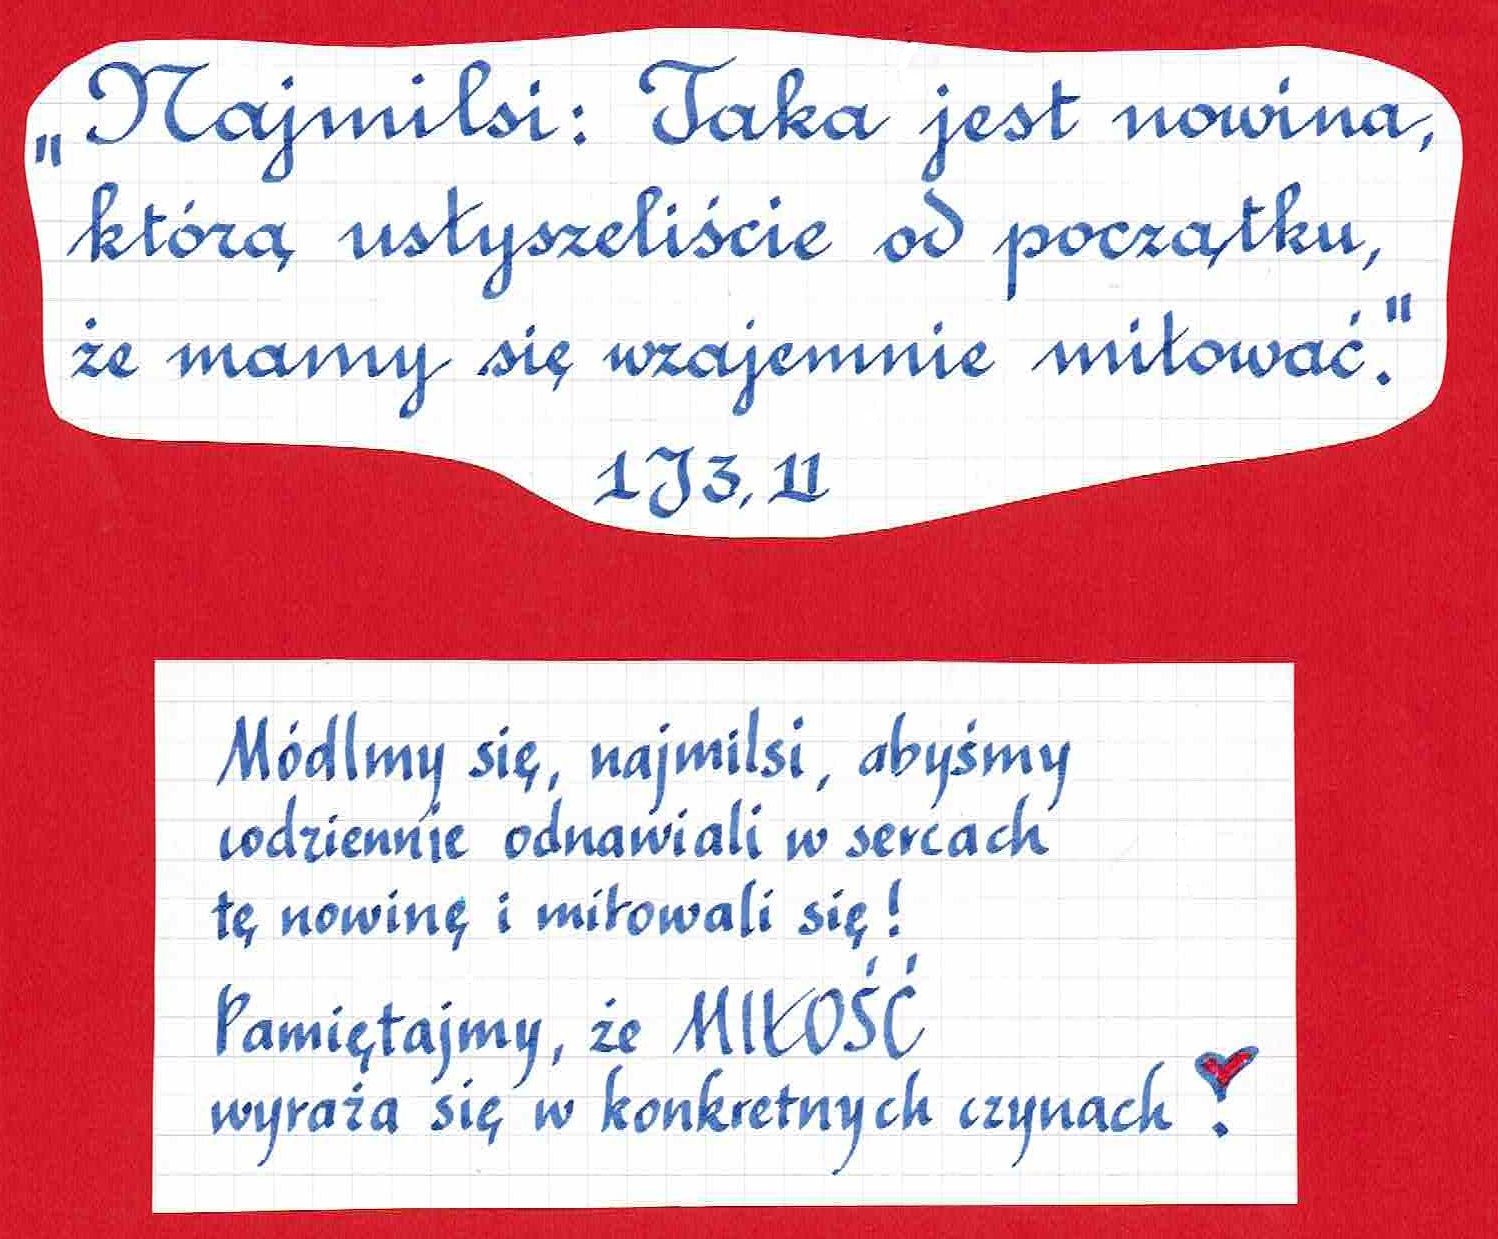 „Najmilsi: Taka jest nowina,
którą usłyszeliście od początku,
że mamy się wzajemnie miłować."
1J3,11
Módlmy się, najmilsi, abyśmy
codziennie odnawiali w sercach
tę nowinę i miłowali się!
Pamiętajmy, że MIŁOŚĆ
wyraża się w konkretnych czynach!